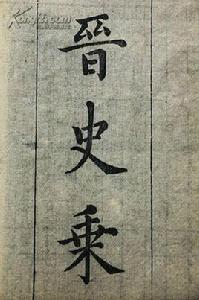 晉史乘